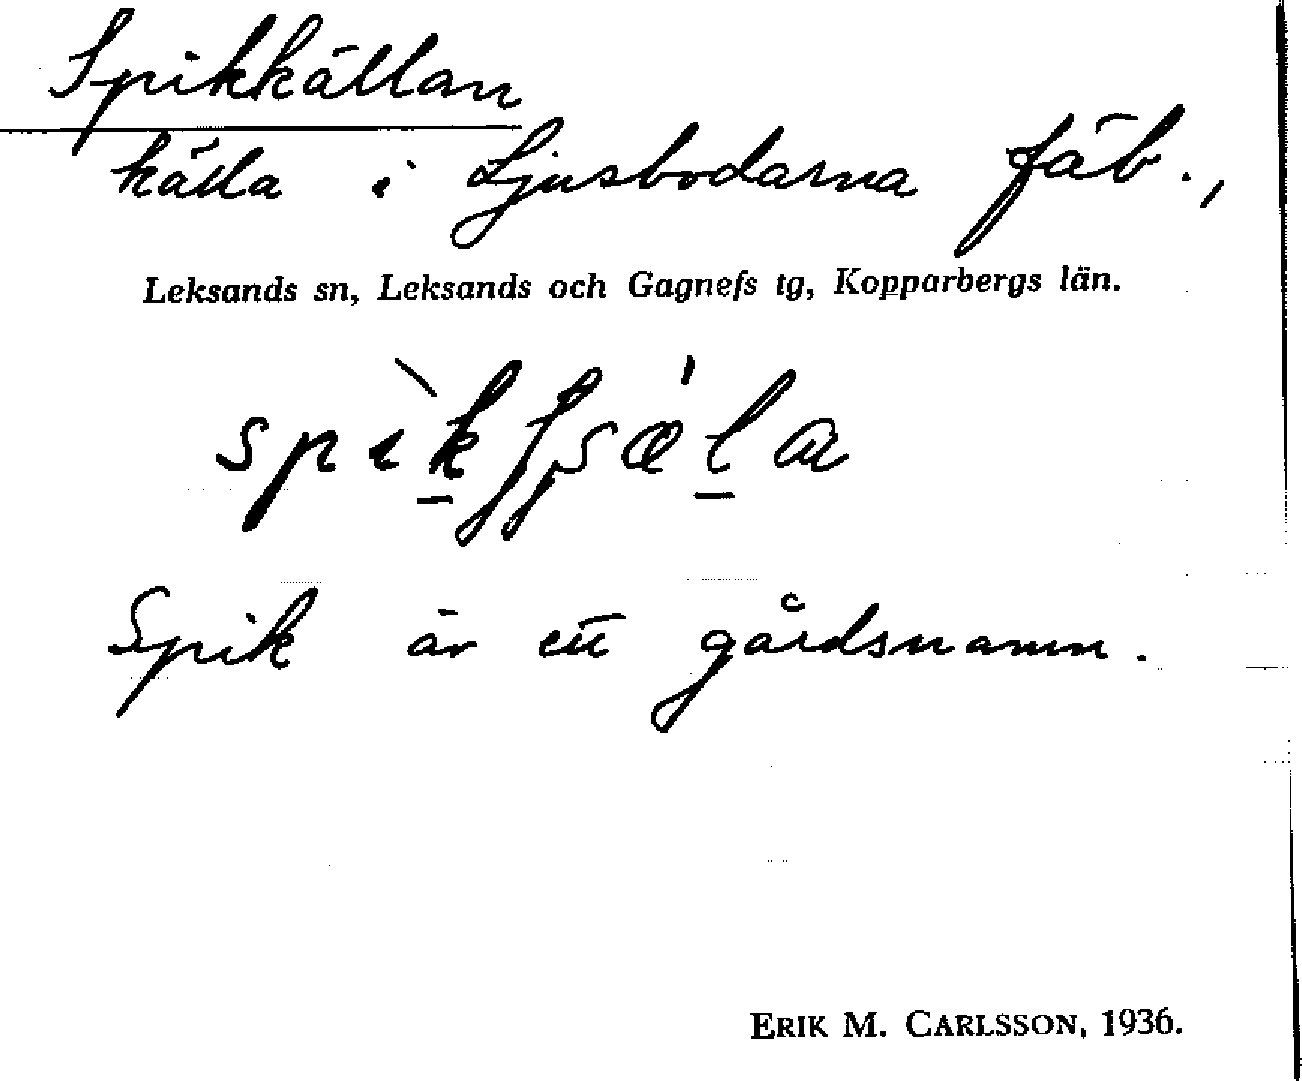 Spikkällan
källa i Ljusbodarna fäb.,
Leksands sn, Leksands och Gagnefs tg, Kopparbergs län.
Spik är ett gårdsnamn.
ERIK M. CARLSSON, 1936.